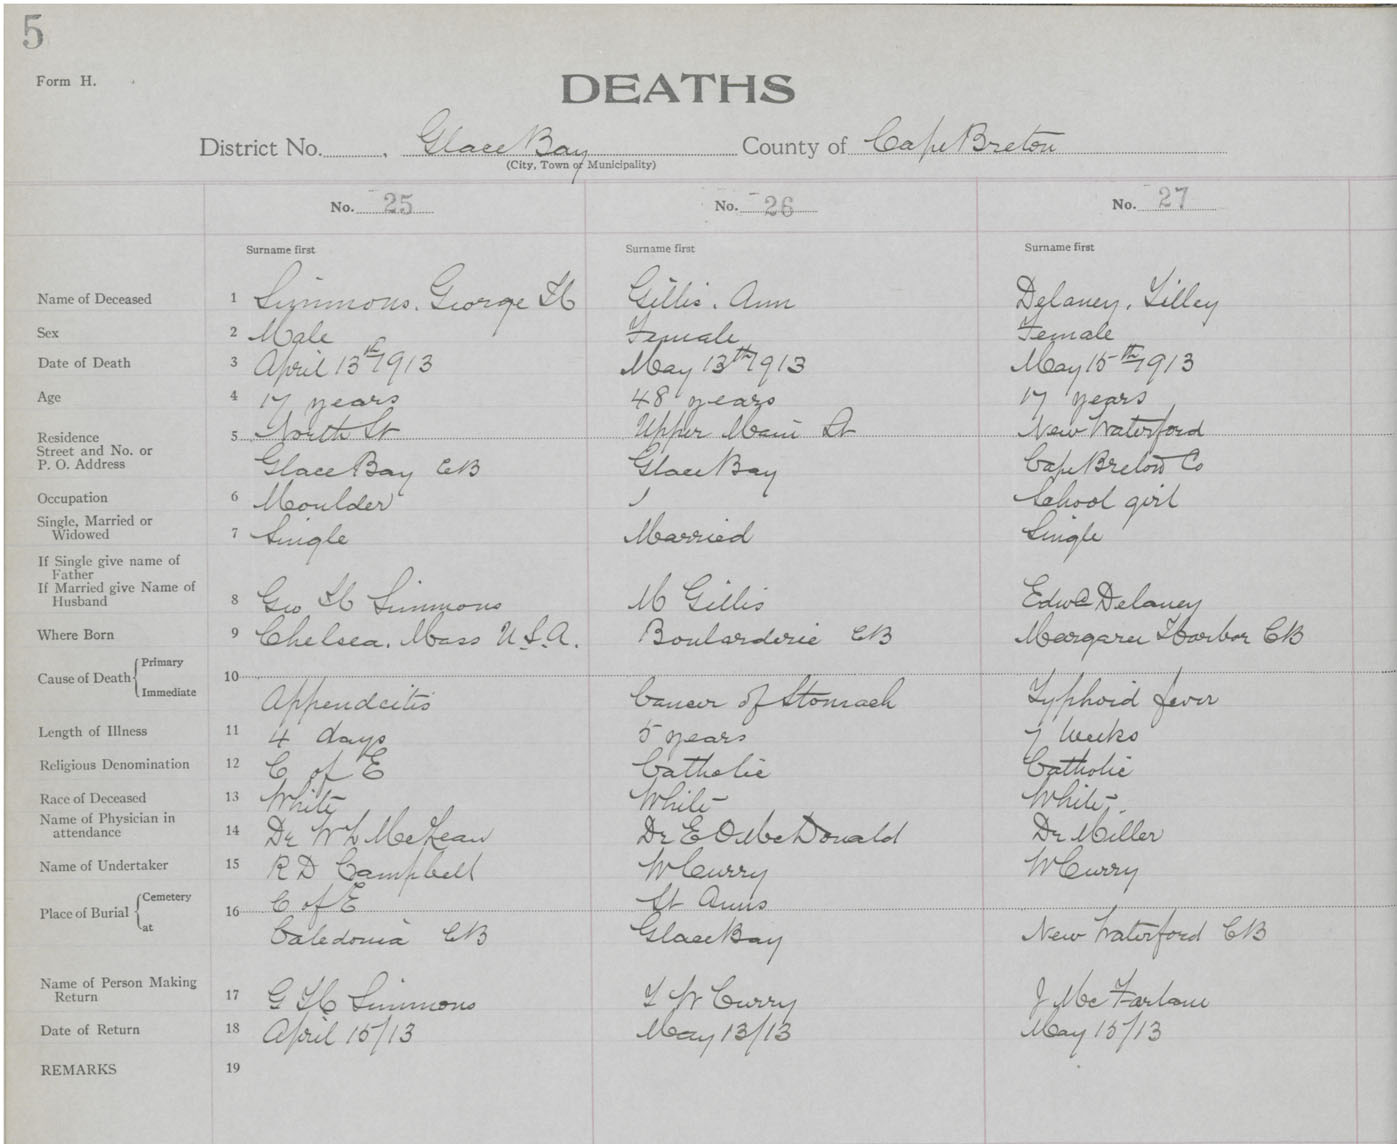 5
Form H.
DEATHS
District No. , Glace Bay County of Cape Breton
(City, Town or Municipality)
No. 25 No. 26 No. 27
Surname first Surname first Surname first
Name of Deceased 1 Simmons. George H Gillis. Ann Delaney, Lilley
Sex 2 Male Female Female
Date of Death 3 April 13th 1913 May 13th 1913 May 15th 1913
Age 4 17 years 48 years 17 years
Residence 5 North St Upper Main St New Waterford
Street and No. or
P. O. Address Glace Bay CB Glace Bay Cape Breton Co
Occupation 6 Moulder / School girl
Single, Married or
Widowed 7 Single Married Single
If Single give name of
Father
If Married give Name of
Husband 8 Geo H Simmons M Gillis Edwd Delaney
Where Born 9 Chelsea. Mass U.S.A. Boularderie CB Margaree Harbor CB
Cause of Death { Primary 10
Immediate Appendcitis Cancer of Stomach Typhoid fever
Length of Illness 11 4 days 5 years 7 weeks
Religious Denomination 12 C of E Catholic Catholic
Race of Deceased 13 White White White.
Name of Physician in
attendance 14 Dr W L McKean Dr E O McDonald Dr Miller
Name of Undertaker 15 R D Campbell W Curry W Curry
Place of Burial { Cemetery 16 C of E St Anns
at Caledonia CB Glace Bay New Waterford CB
Name of Person Making
Return 17 G H Simmons W Curry J McFarlane
Date of Return 18 April 15/13 May 13/13 May 15/13
REMARKS 19